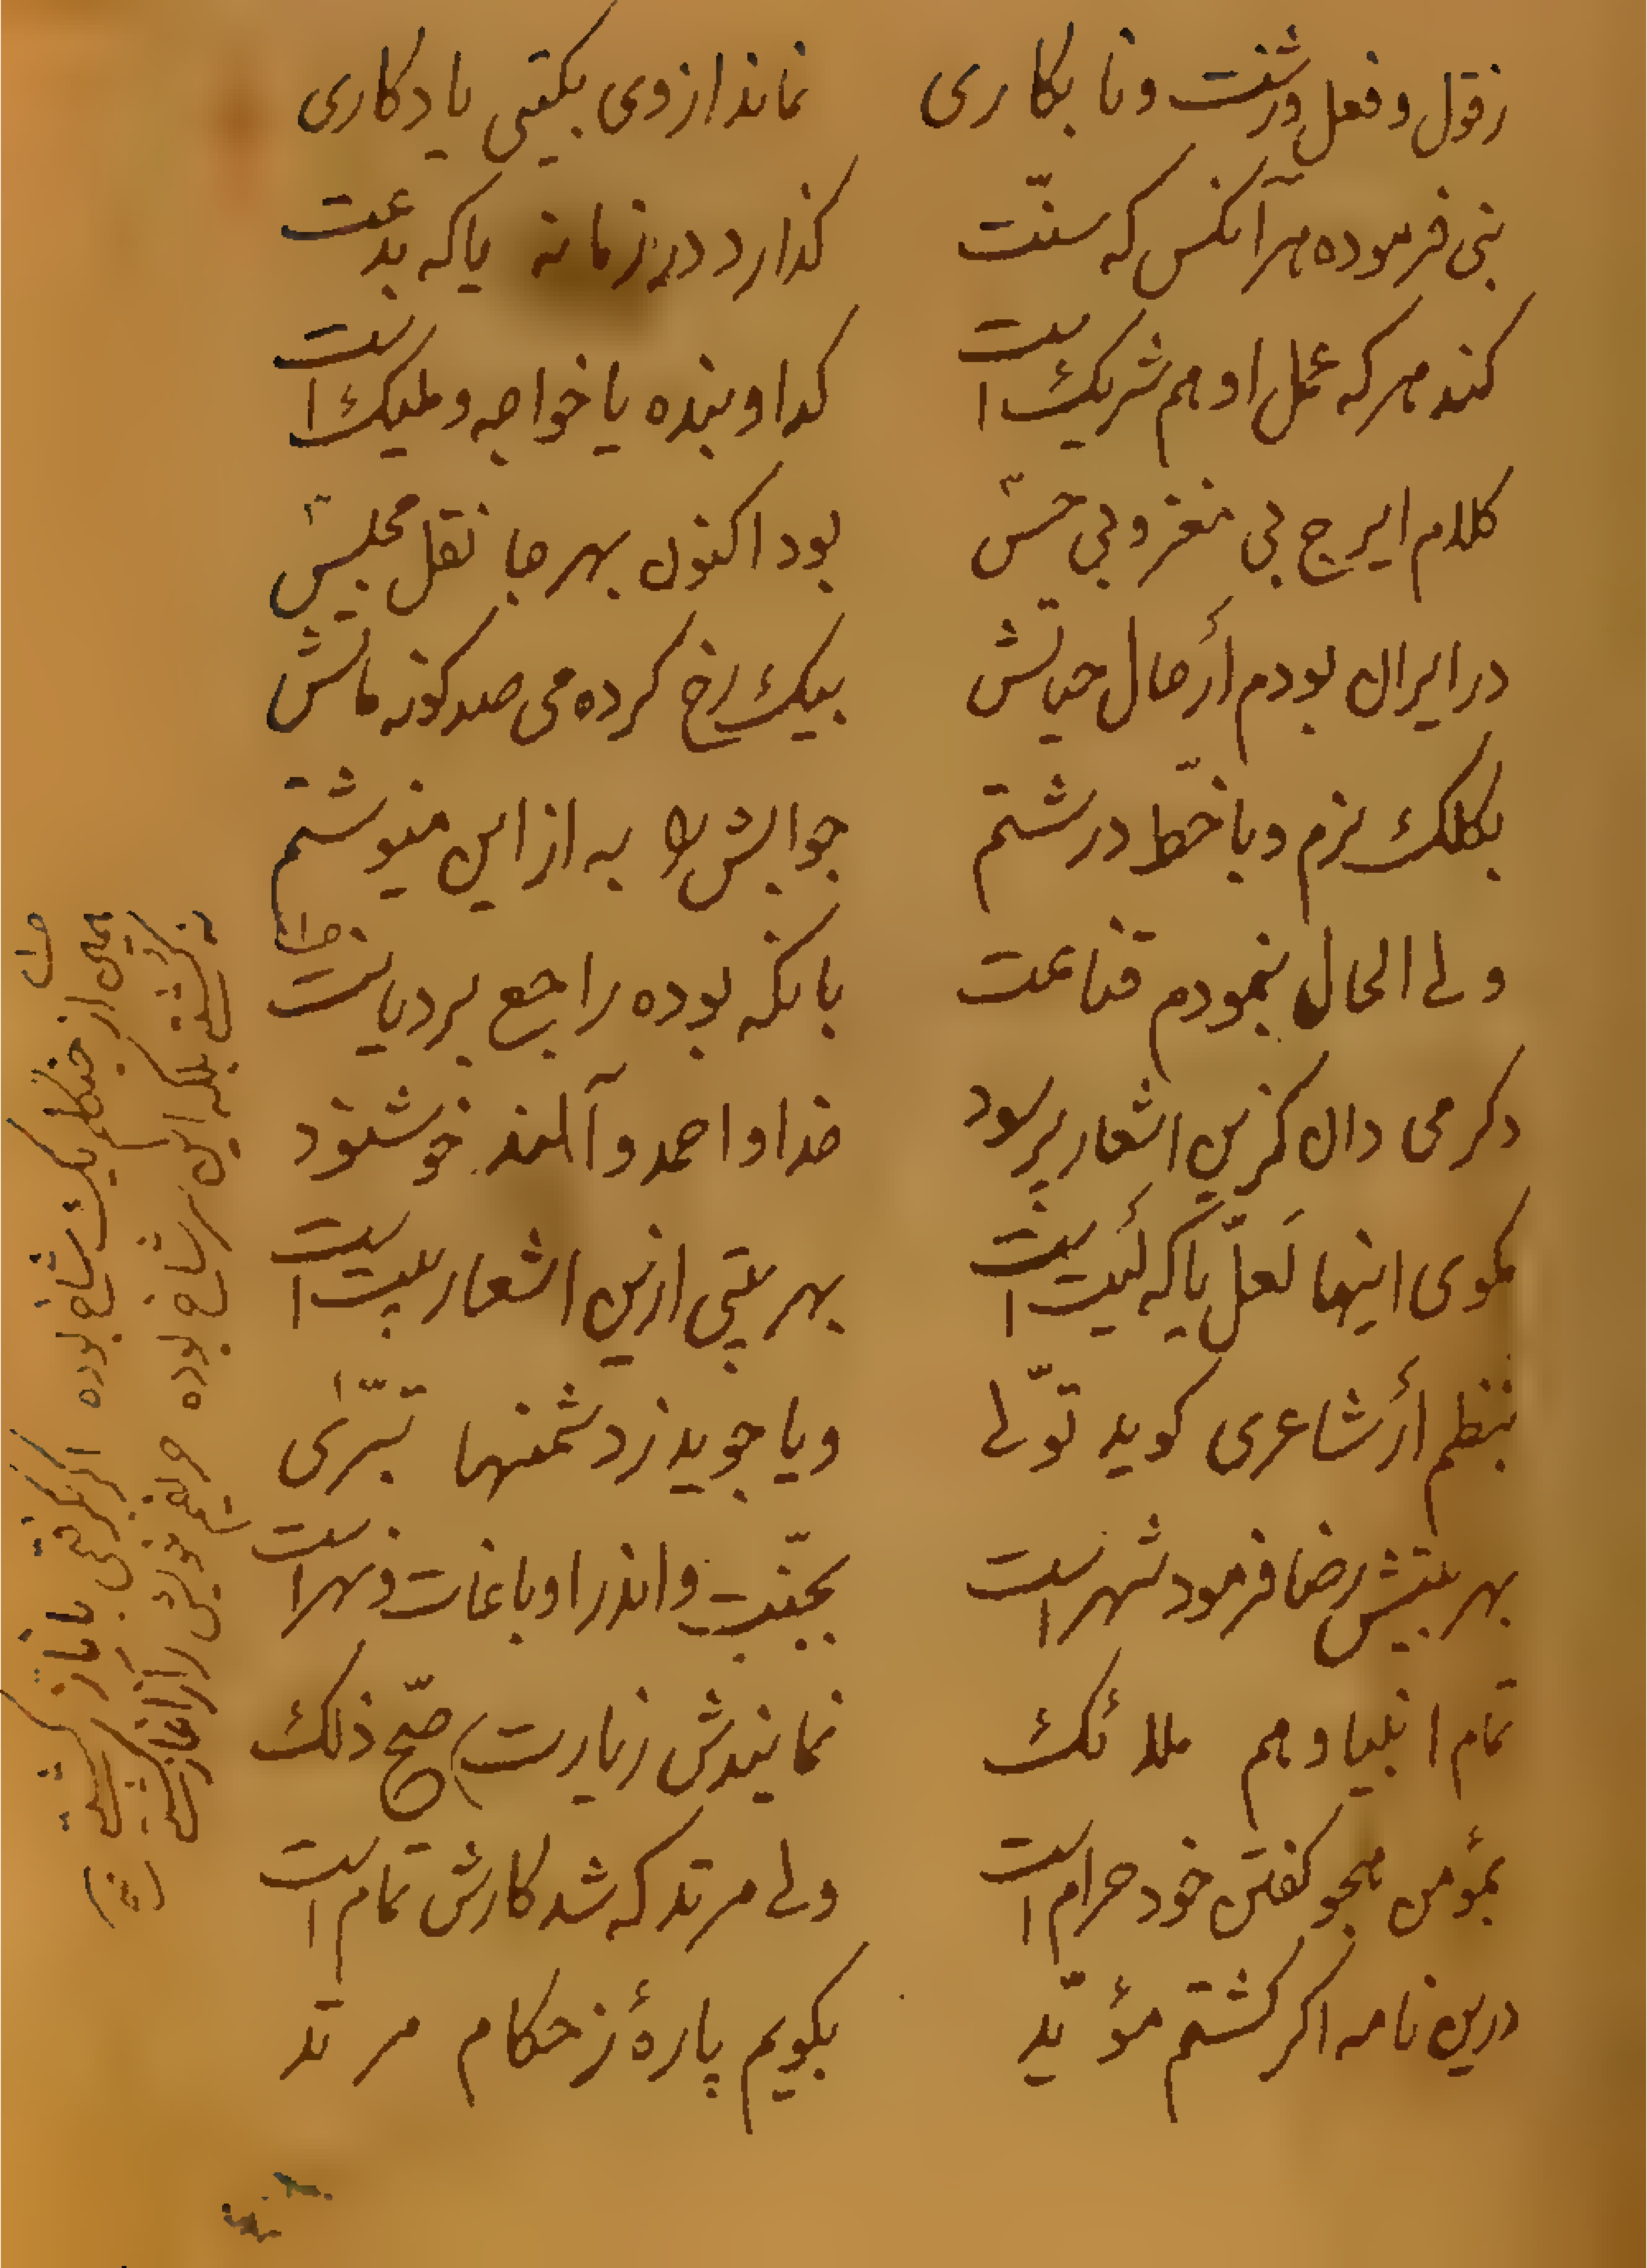 زقول و فعل و زشت و نابکاری    نماند از وی بکیتی یادکاری
نبی فرموده هر آنکس که سنّت    کذارد در زمانه یا که بدعت
کند هر که عمل او هم شریک است    کدا و بنده یا خواجه و ملیک است
کلام ایرج بی مغز و بی حسّ    بود اکنون بهر جا نقل مجلسّ
در ایران بودم أر حال حیاتش    بیک رخ کرده می صد کونه ماتش
بکلک نرم و با خّط درشتم    جوابش را به از این مینوشتم
ولی الحال بنمودم قناعت    بانکه بوده راجع بر دیانت
دکر می دان کزین اشعار پرسود    خدا و احمد و آلند خوشنود
مکوی اینها لَعلّ یا که لَیت است    بهر بیتی ازین اشعار بیت است
بنظم أر شاعری کوید تولّی    و یا جوید ز دشمنها تبرّی
بهر بیتش رضا فرمود شهر است    بجنّت و اندر او باغات و نهر است
تمام انبیا و هم ملائک    نمایندش زیارت) صحّ ذلک
بمؤمن هجو کفتن خود حرام است    ولی مرتد که شد کارش تمام است
درین نامه اکر کشتم مؤیّد    بکویم پارهٔ ز حکام مرتد
بلکه این شاخ بوده
یک شاخ بوده